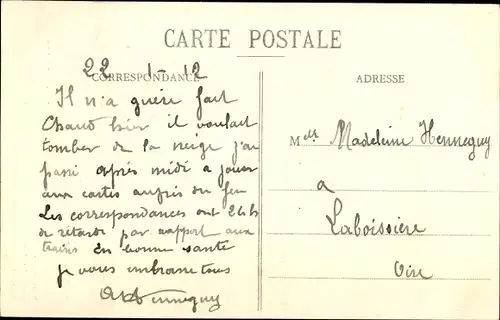 CARTE POSTALE
CORRESPONDANCE
22 1 - 12
Il n'a guère fait
Chaud hier il voulait
tomber de la neige j'ai
passé après midi a jouer
aux cartes auprès du feu
Les correspondances ont 24 h
de retards par rapport aux
trains En bonne santé
je vous embrasse tous
Hennequy
ADRESSE
Melle Madeleine Hennequy
a
Laboissière
Oise